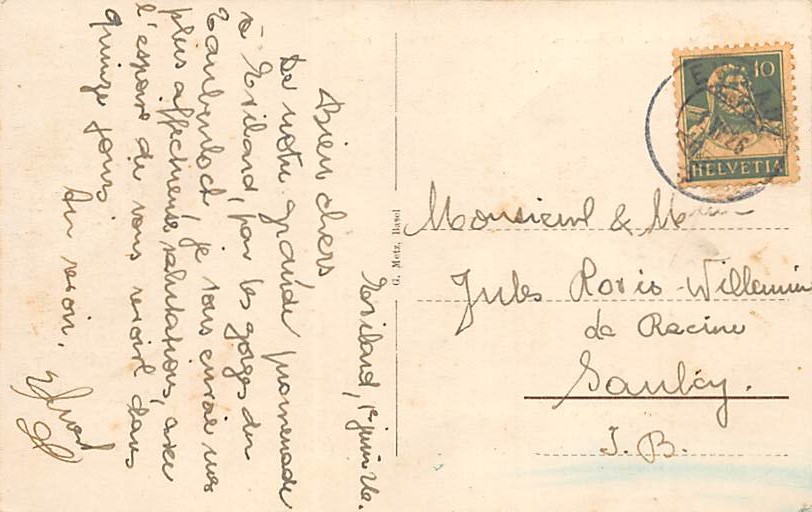 Evilard, 1er juin 26.
Bien chers
De notre grande promenade
à Evilard, par les gorges du
Taubenloch, je vous envoie nos
plus affectueuses salutations, avec
l'espoir de vous revoir dans
quinze jours
Au revoir,
G. Metz, Basel
10
HELVETIA
Monsieur & Mme
Jules Voris-Willemin
de Racine
Saulcy.
J. B.